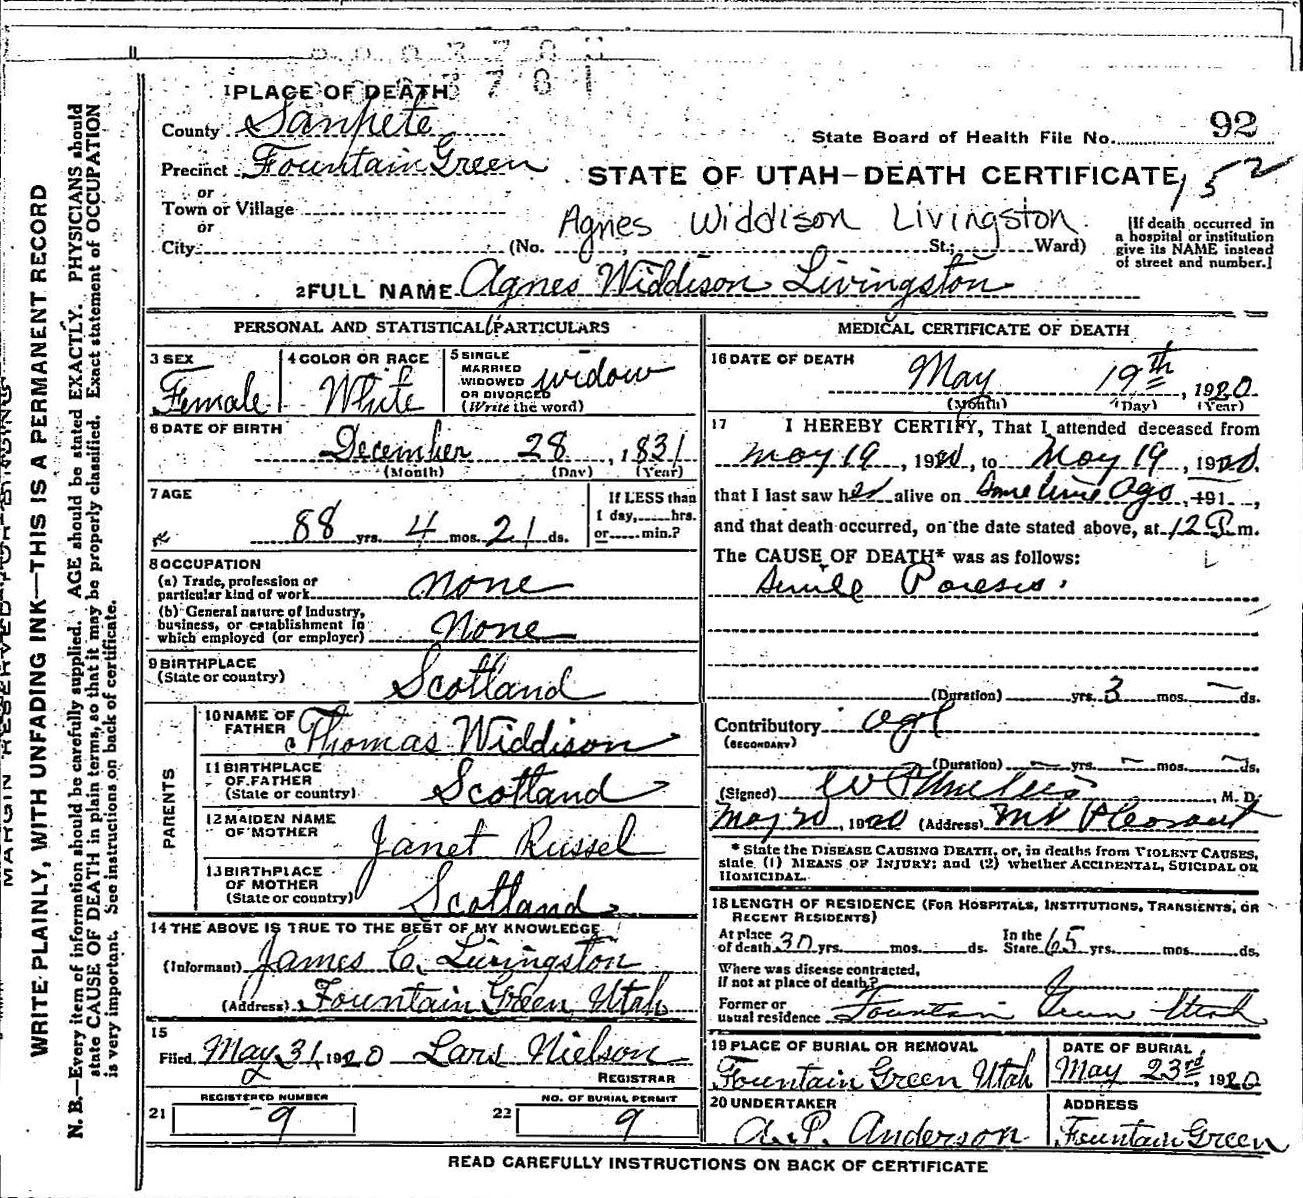 1 PLACE OF DEATH
County Sanpete
Precinct Fountain Green
or
Town or Village
or
City (No. St.; Ward)
State Board of Health File No. 92
STATE OF UTAH—DEATH CERTIFICATE 152
Agnes Widdison Livingston
[If death occurred in
a hospital or institution
give its NAME instead
of street and number.]
2 FULL NAME Agnes Widdison Livingston
PERSONAL AND STATISTICAL PARTICULARS
3 SEX
Female
4 COLOR OR RACE
White
5 SINGLE
MARRIED
WIDOWED
OR DIVORCED
(Write the word)
widow
6 DATE OF BIRTH
December 28, 1831
(Month) (Day) (Year)
7 AGE
88 yrs. 4 mos. 21 ds.
If LESS than
1 day, hrs.
or min.?
8 OCCUPATION
(a) Trade, profession or
particular kind of work none
(b) General nature of Industry,
business, or establishment in
which employed (or employer) None
9 BIRTHPLACE
(State or country) Scotland
PARENTS
10 NAME OF
FATHER Thomas Widdison
11 BIRTHPLACE
OF FATHER
(State or country) Scotland
12 MAIDEN NAME
OF MOTHER Janet Russel
13 BIRTHPLACE
OF MOTHER
(State or country) Scotland
14 THE ABOVE IS TRUE TO THE BEST OF MY KNOWLEDGE
(Informant) James C. Livingston
(Address) Fountain Green Utah
15
Filed May 31, 1920 Lars Nielson
REGISTRAR
21 REGISTERED NUMBER
9
22 NO. OF BURIAL PERMIT
9
MEDICAL CERTIFICATE OF DEATH
16 DATE OF DEATH
May 19th, 1920
(Month) (Day) (Year)
17 I HEREBY CERTIFY, That I attended deceased from
May 19, 1920, to May 19, 1920.
that I last saw her alive on Sometime Ago, 191
and that death occurred, on the date stated above, at 12 P.m.
The CAUSE OF DEATH* was as follows:
Senile Paresis.
(Duration) yrs. 3 mos. — ds.
Contributory age
(SECONDARY)
(Duration) — yrs. — mos. — ds.
(Signed) M. D.
May 20, 1920 (Address) Mt Pleasant
* State the DISEASE CAUSING DEATH, or, in deaths from VIOLENT CAUSES,
state (1) MEANS OF INJURY; and (2) whether ACCIDENTAL, SUICIDAL OR
HOMICIDAL.
18 LENGTH OF RESIDENCE (FOR HOSPITALS, INSTITUTIONS, TRANSIENTS, OR
RECENT RESIDENTS)
At place
of death yrs. mos. ds.
In the
State 65 yrs. mos. ds.
Where was disease contracted,
If not at place of death?
Former or
usual residence Fountain Green Utah
19 PLACE OF BURIAL OR REMOVAL
Fountain Green Utah
DATE OF BURIAL
May 23rd, 1920
20 UNDERTAKER
A. P. Anderson
ADDRESS
Fountain Green
READ CAREFULLY INSTRUCTIONS ON BACK OF CERTIFICATE
MARGIN RESERVED FOR BINDING
WRITE PLAINLY, WITH UNFADING INK—THIS IS A PERMANENT RECORD
N. B.—Every item of information should be carefully supplied. AGE should be stated EXACTLY. PHYSICIANS should
state CAUSE OF DEATH in plain terms, so that it may be properly classified. Exact statement of OCCUPATION
is very important. See instructions on back of certificate.